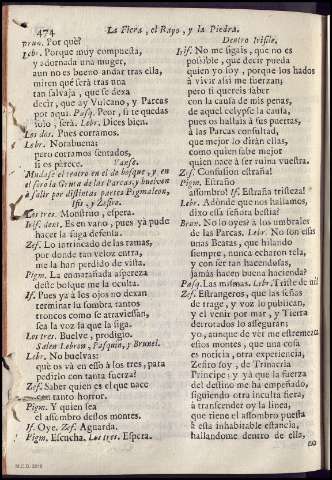 474
La Fiera, el Rayo, y la Piedra.
Brun. Por què?
Lebr. Porque muy compuesta,
y adornada una muger,
aun no es bueno andar tras ella,
miren què serà tras una
tan salvaja, que se dexa
decir, que ay Vulcano, y Parcas
por aqui. Pasq. Peor, si te quedas
solo, serà. Lebr. Dices bien.
Los dos. Pues corramos.
Lebr. Norabuena;
pero corramos sentados,
si os parece. Vanse.
Mudase el teatro en el de bosque, y en
el foro la Gruta de las Parcas, y buelven
à salir por distintas partes Pigmaleon,
Ifis, y Zefiro.
Los tres. Monstruo, espera.
Irif. dent. Es en vano, pues yà pude
hacer la fuga defensa.
Zef. Lo intricado de las ramas,
por donde tan veloz entra,
me la han perdido de vista.
Pigm. La enmarañada aspereza
deste bosque me la oculta.
If. Pues yà à los ojos no dexan
terminar la sombra tantos
troncos como se atraviessan,
sea la voz la que la siga.
Los tres. Buelve, prodigio.
Salen Lebron, Pasquin, y Brunel.
Lebr. No buelvas:
què os và en esso à los tres, para
pedirlo con tanta fuerza?
Zef. Saber quien es el que nace
con tanto horror.
Pigm. Y quien sea
el assombro destos montes.
If. Oye. Zef. Aguarda.
Pigm. Escucha. Los tres. Espera.
Dentro Irifile.
Irif. No me sigais, que no es
possible, que decir pueda
quien yo soy, porque los hados
à vivir assi me fuerzan;
pero si quereis saber
con la causa de mis penas,
de aquel eclypse la causa,
pues os hallais à sus puertas,
à las Parcas consultad,
que mejor lo diràn ellas,
como quien sabe mejor
quien nace à ser ruina vuestra.
Zef. Confusion estraña!
Pigm. Estraño
assombro! If. Estraña tristeza!
Lebr. Adònde que nos hallamos,
dixo essa señora bestia?
Brun. No lo oyes? à los umbrales
de las Parcas. Lebr. No son essas
unas Beatas, que hilando
siempre, nunca echaron tela,
y con ser tan hacendosas,
jamàs hacen buena hacienda?
Pasq. Las mismas. Lebr. Triste de mi!
Zef. Estrangeros, que las señas
de trage, y voz lo publican,
y el venir por mar, y Tierra
derrotados lo asseguran:
yo, aunque de vèr me estremezca
estos montes, que una cosa
es noticia, otra experiencia,
Zefiro soy, de Trinacria
Principe; y yà que la fuerza
del destino me ha empeñado,
siguiendo otra inculta fiera,
à transcender oy la linea,
que tiene el assombro puesta
à esta inhabitable estancia,
hallandome dentro de ella,